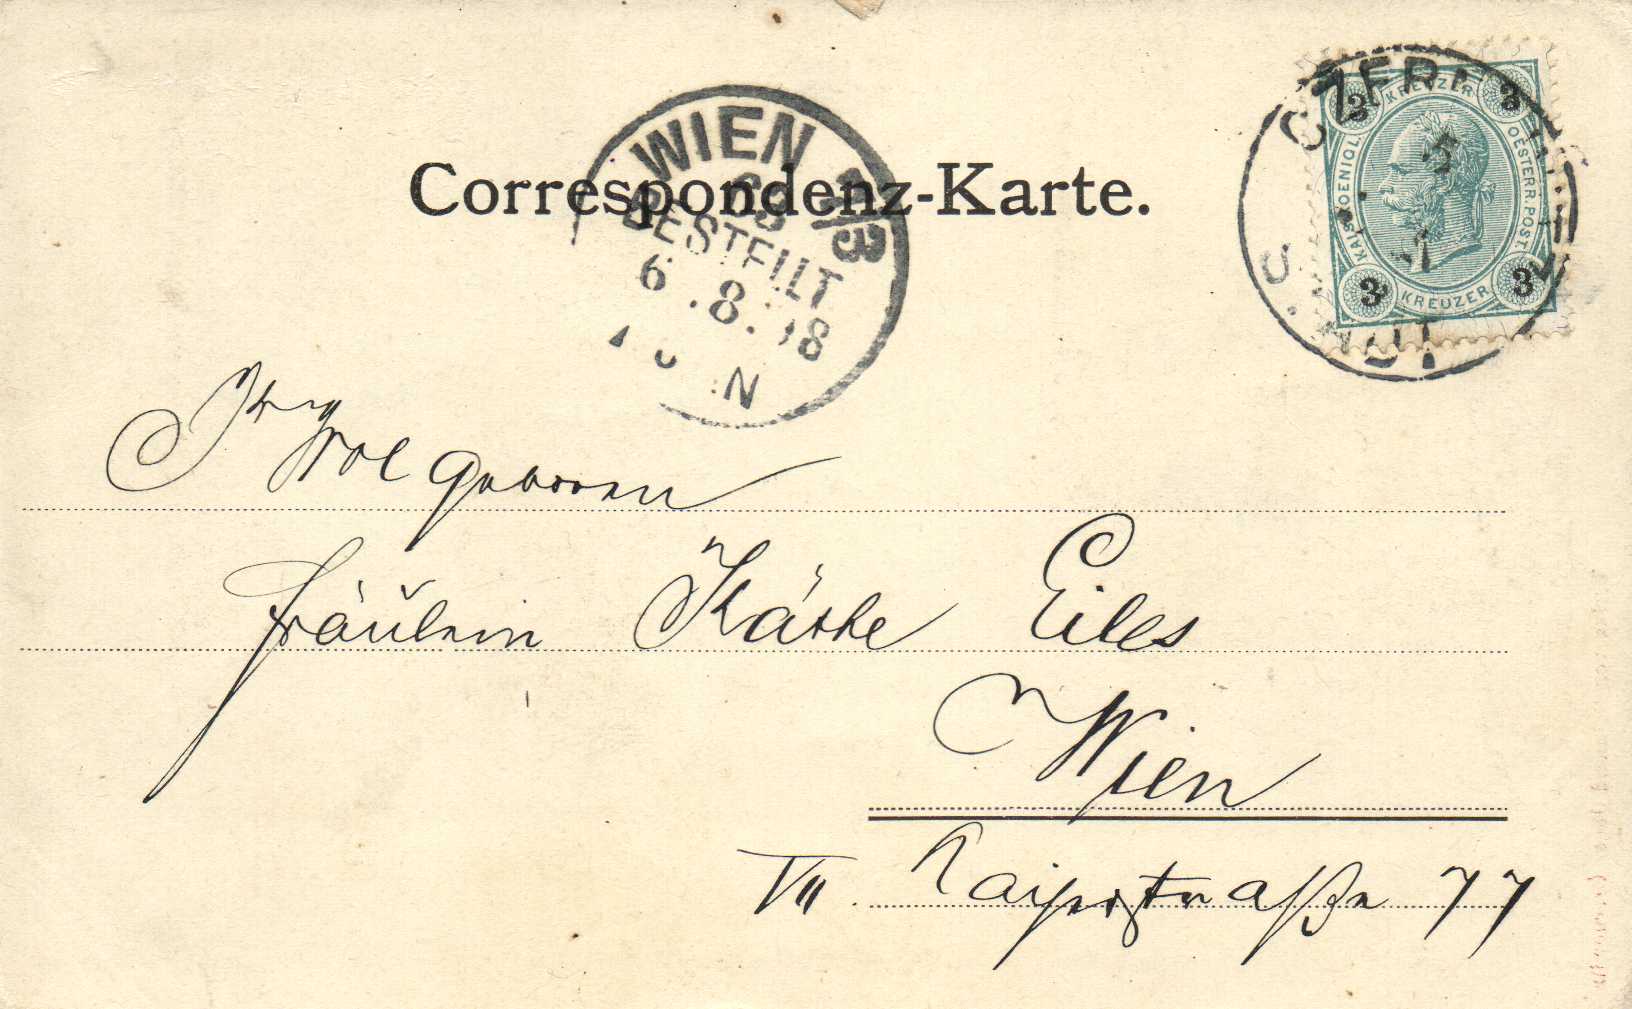 Correspondenz-Karte.
WIEN 9/3
68
BESTELLT
6.8.98
N
KREUZER
3 3
KAIS.KOENIGL. OESTERR.POST.
3 3
KREUZER
Ihr Wolgeboren
Fräulein Käthe Eiles
Wien
VII. Kaiserstraße 77